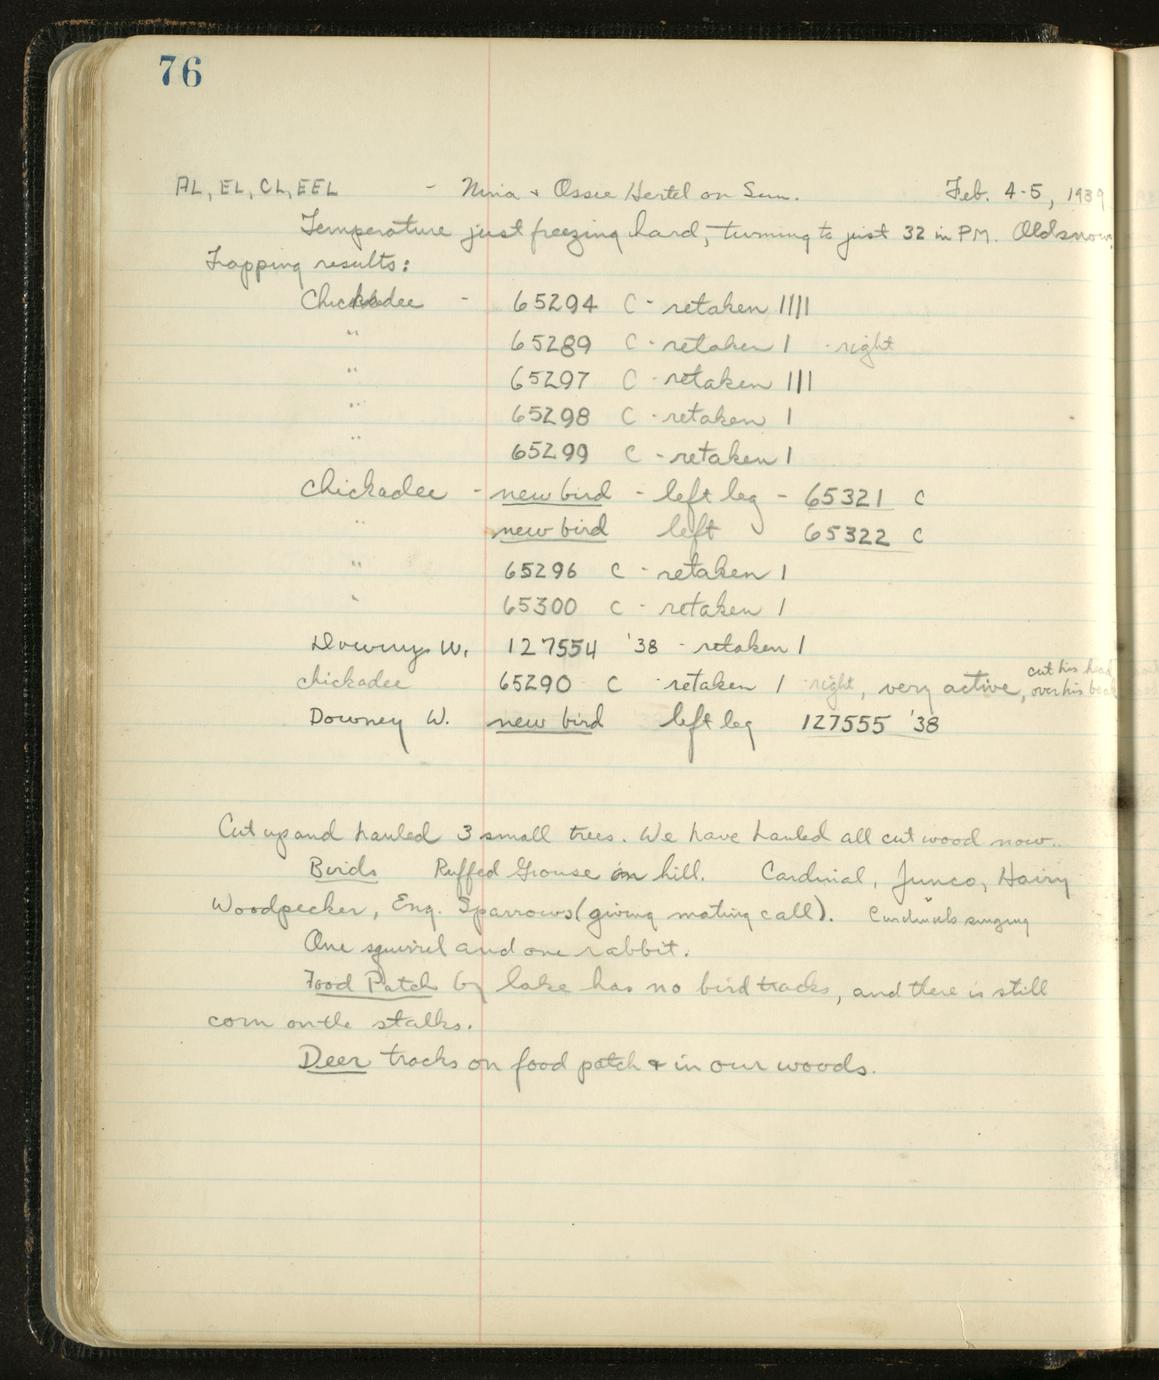 76
AL, EL, CL, EEL - Nina & Ossie Hertel on Sun. Feb. 4-5, 1939
Temperature just freezing hard, turning to just 32 in PM. Old snow.
Trapping results:
Chickadee - 65294 C - retaken 1111
" 65289 C - retaken 1 - right
" 65297 C - retaken 111
" 65298 C - retaken 1
" 65299 C - retaken 1
Chickadee - new bird - left leg - 65321 C
" new bird left 65322 C
" 65296 C - retaken 1
" 65300 C - retaken 1
Downy W. 127554 '38 - retaken 1
cut his head
chickadee 65290 C retaken 1 right, very active, over his beak
Downey W. new bird left leg 127555 '38
Cut up and hauled 3 small trees. We have hauled all cut wood now..
Birds Ruffed Grouse on hill. Cardinal, Junco, Hairy
Woodpecker, Eng. Sparrows (giving mating call). Cardinals singing
One squirrel and one rabbit.
Food Patch by lake has no bird tracks, and there is still
corn on the stalks.
Deer tracks on food patch & in our woods.